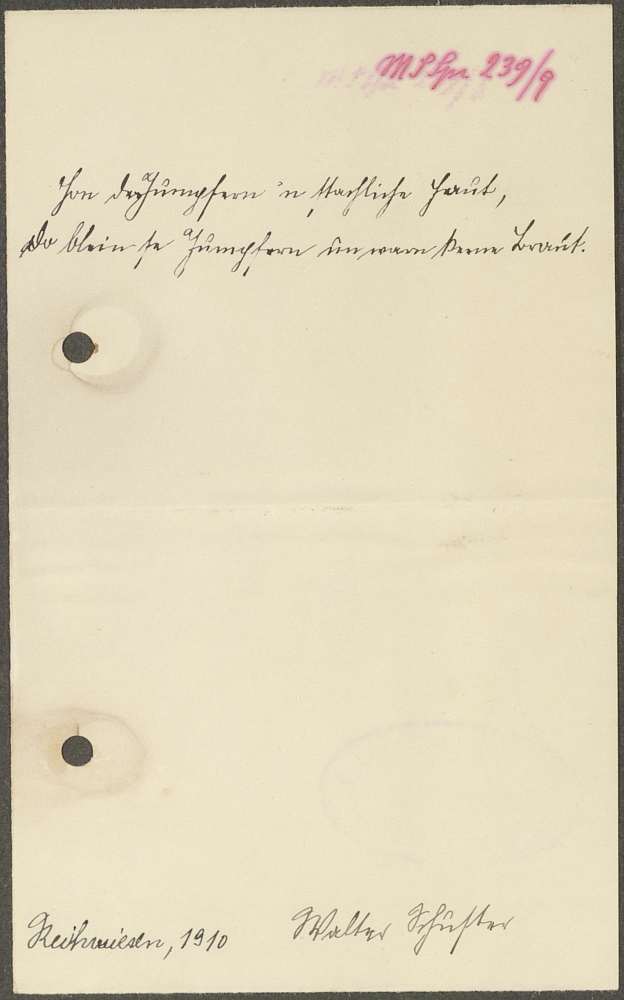 MSpr 239/9
Hon de Jumpfern 'n stachliche Haut,
Do blein se Jumpfern un warn keene Braut.
Reihwiesen, 1910
Walter Schuster